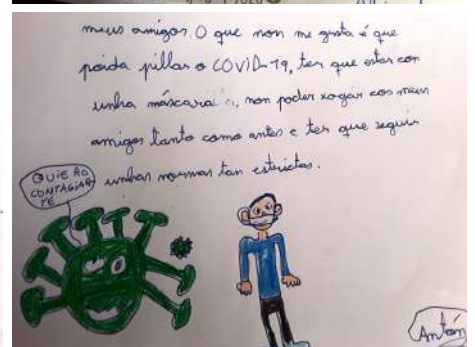 meus amigos. O que non me gusta é que
poida pillar o COVID-19, ter que estar con
unha máscara, non poder xogar cos meus
amigos tanto como antes e ter que seguir
unhas normas tan estrictas.
QUIERO
CONTAGIAR
TE
Antón